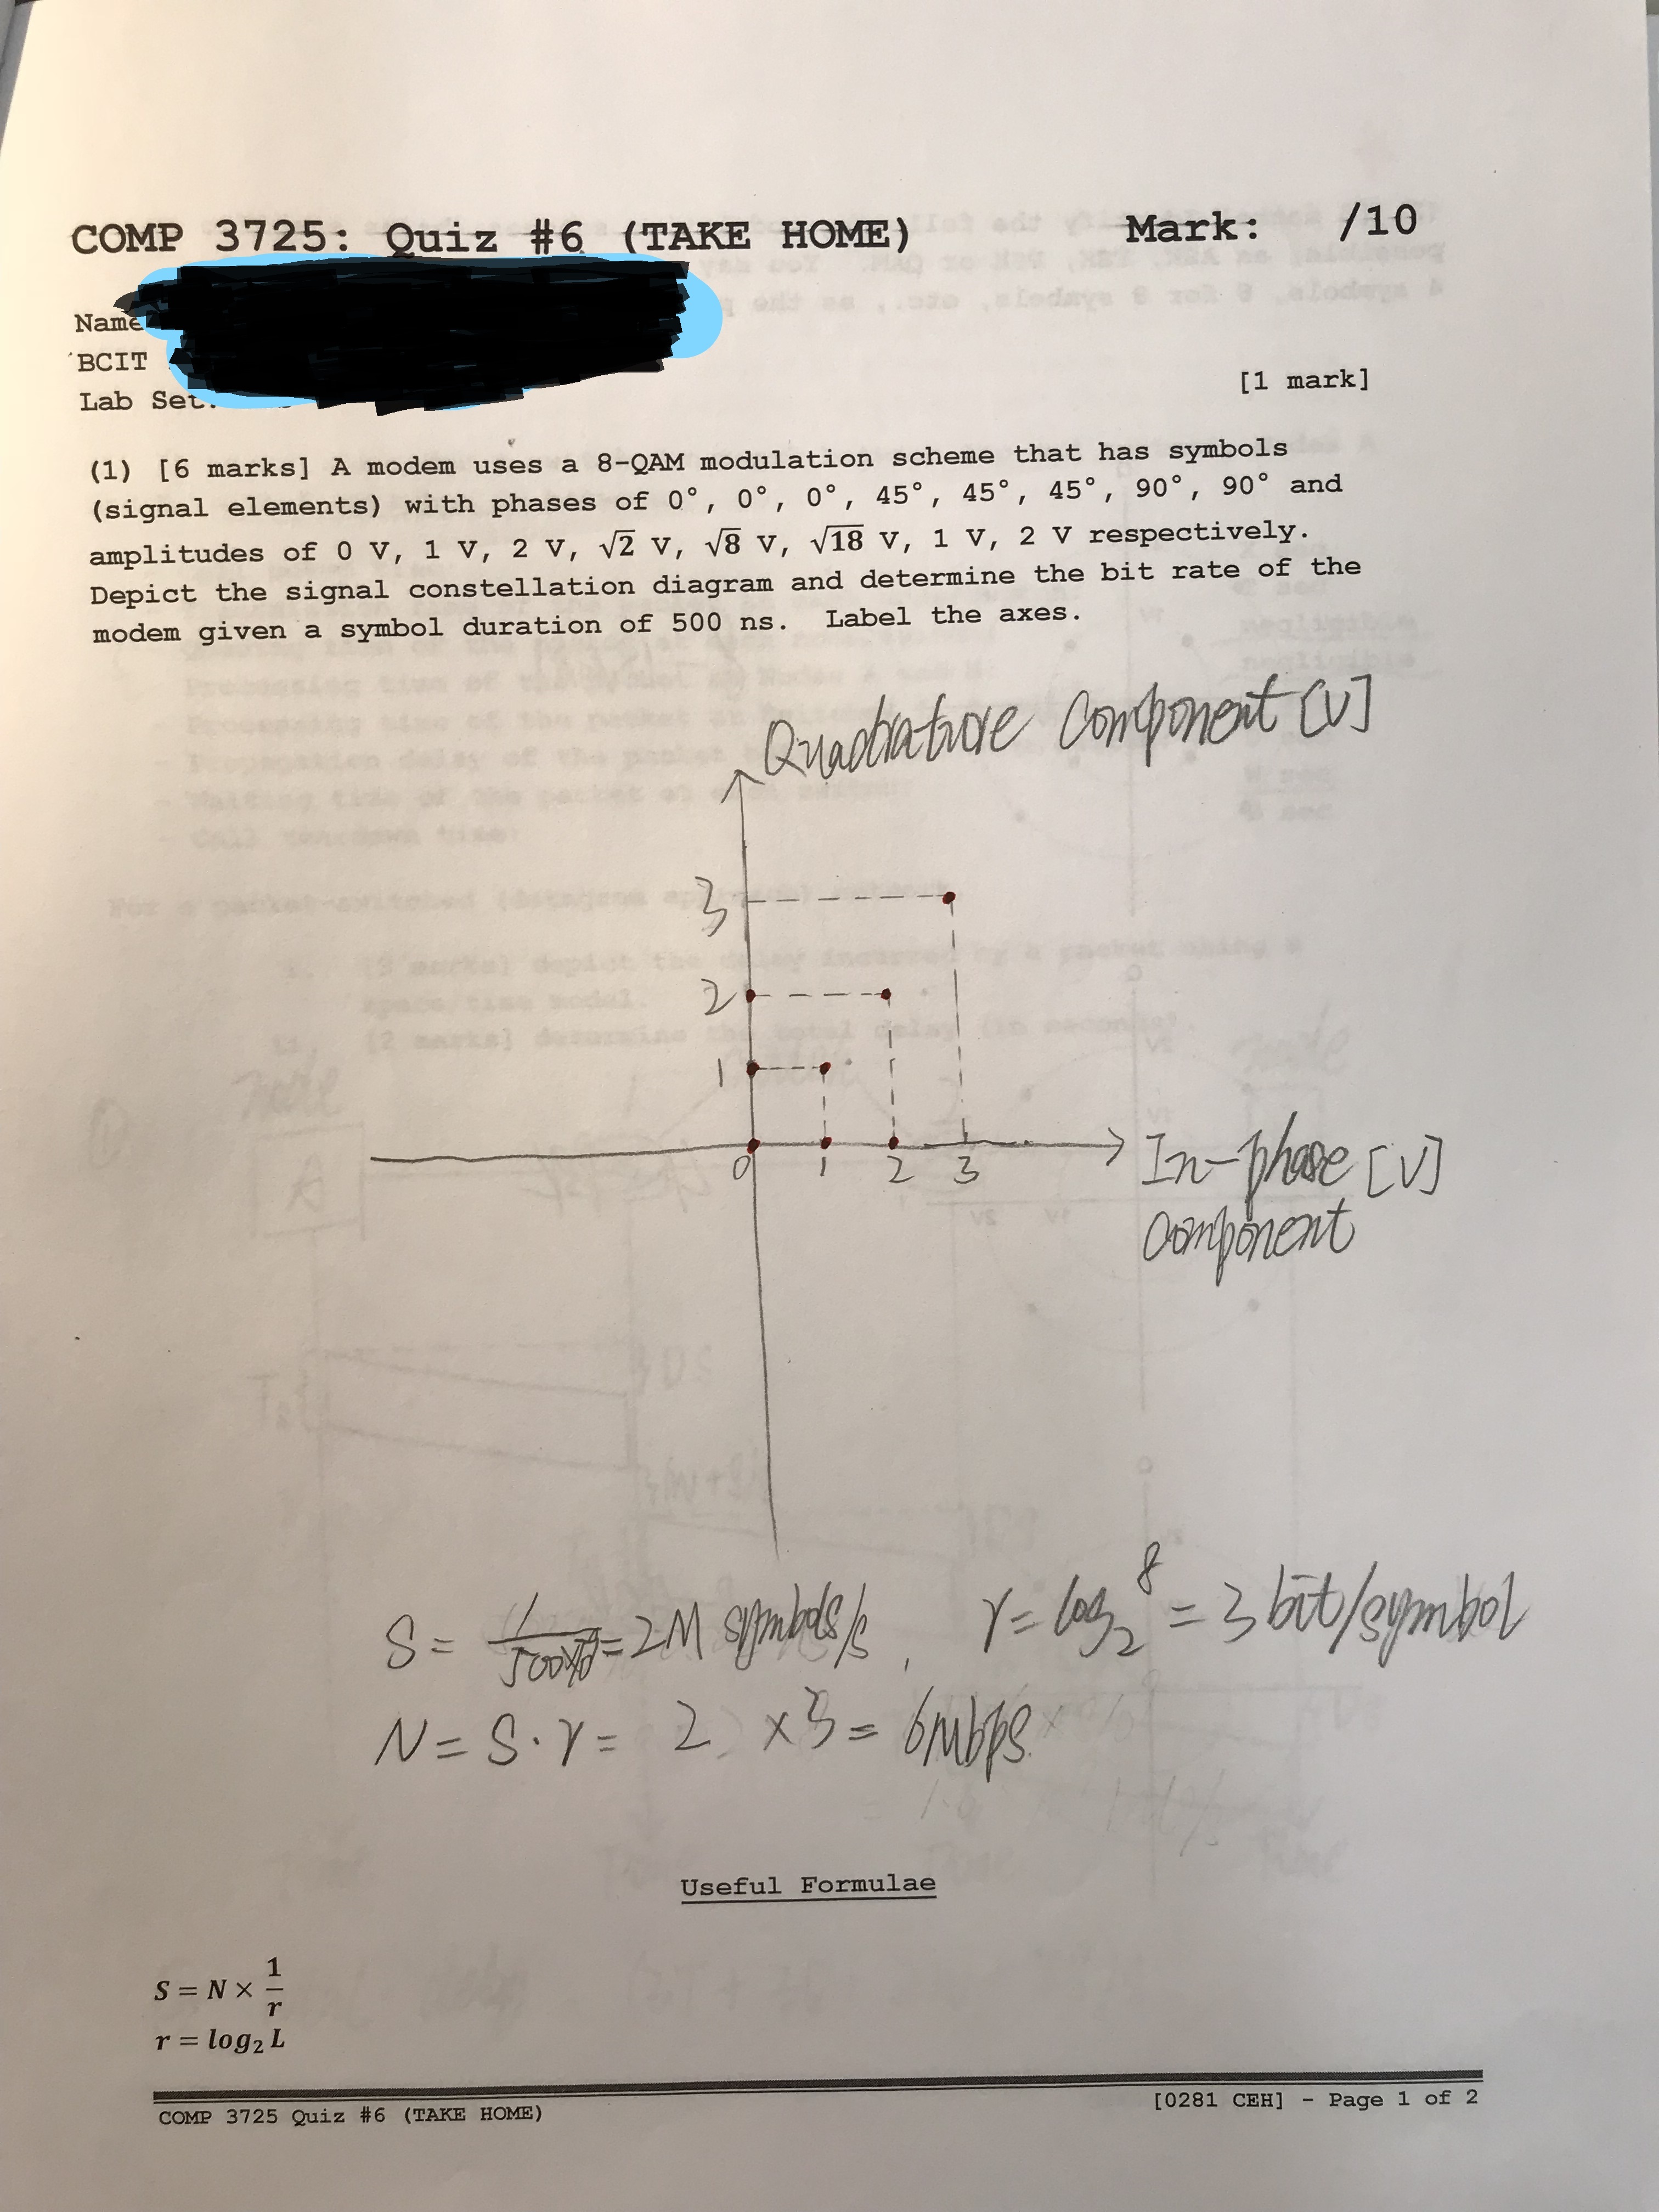 COMP 3725: Quiz #6 (TAKE HOME) Mark: /10
Name
BCIT
Lab Set:
[1 mark]
(1) [6 marks] A modem uses a 8-QAM modulation scheme that has symbols
(signal elements) with phases of 0°, 0°, 0°, 45°, 45°, 45°, 90°, 90° and
amplitudes of 0 V, 1 V, 2 V, √2 V, √8 V, √18 V, 1 V, 2 V respectively.
Depict the signal constellation diagram and determine the bit rate of the
modem given a symbol duration of 500 ns. Label the axes.
Quadrature Component [V]
3
2
1
0 1 2 3
In-phase [V]
component
S = 1/500×10⁻⁹ = 2M symbols/s, r = log₂8 = 3 bit/symbol
N = S · r = 2 × 3 = 6Mbps
Useful Formulae
S = N × 1/r
r = log₂ L
COMP 3725 Quiz #6 (TAKE HOME) [0281 CEH] - Page 1 of 2